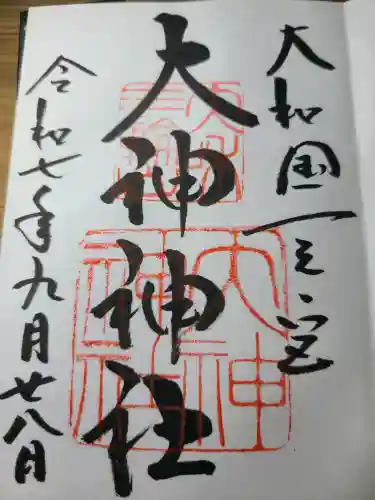 大和国一之宮
大神神社
令和七年九月廿八日
大神
神社